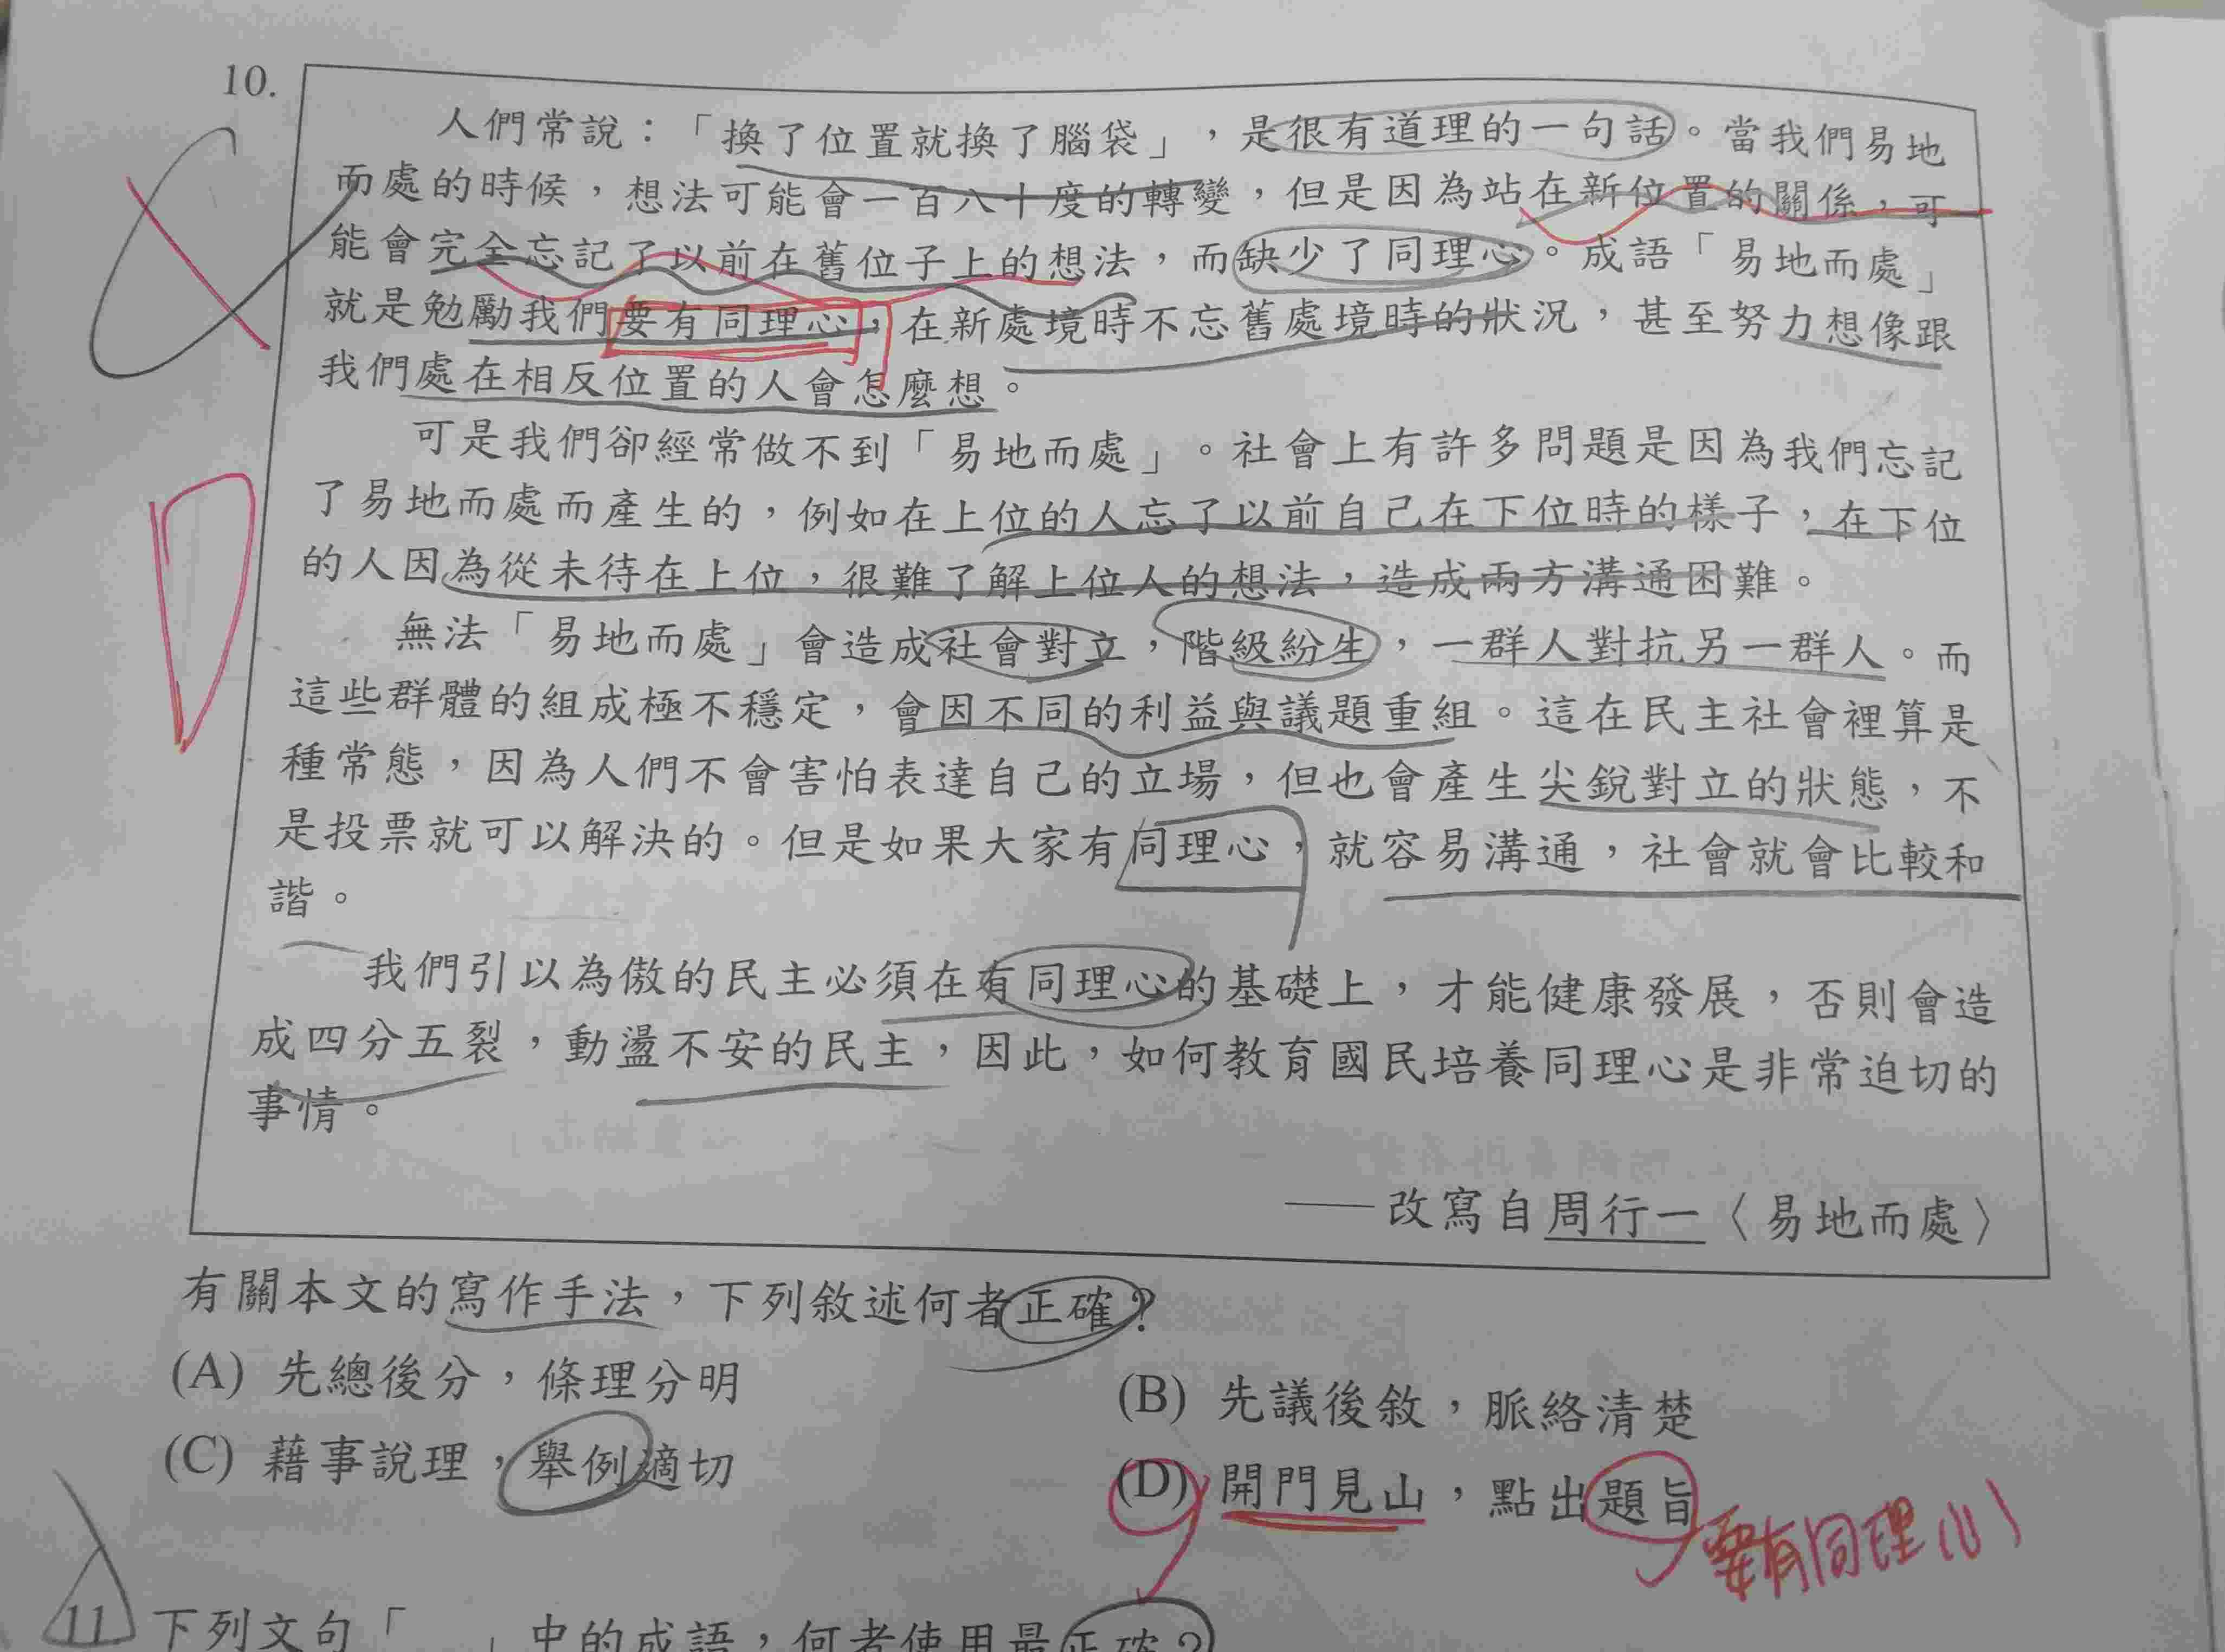 10.
人們常說：「換了位置就換了腦袋」，是很有道理的一句話。當我們易地
而處的時候，想法可能會一百八十度的轉變，但是因為站在新位置的關係，可
能會完全忘記了以前在舊位子上的想法，而缺少了同理心。成語「易地而處」
就是勉勵我們要有同理心，在新處境時不忘舊處境時的狀況，甚至努力想像跟
我們處在相反位置的人會怎麼想。
可是我們卻經常做不到「易地而處」。社會上有許多問題是因為我們忘記
了易地而處而產生的，例如在上位的人忘了以前自己在下位時的樣子，在下位
的人因為從未待在上位，很難了解上位人的想法，造成兩方溝通困難。
無法「易地而處」會造成社會對立，階級紛生，一群人對抗另一群人。而
這些群體的組成極不穩定，會因不同的利益與議題重組。這在民主社會裡算是
種常態，因為人們不會害怕表達自己的立場，但也會產生尖銳對立的狀態，不
是投票就可以解決的。但是如果大家有同理心，就容易溝通，社會就會比較和
諧。
我們引以為傲的民主必須在有同理心的基礎上，才能健康發展，否則會造
成四分五裂，動盪不安的民主，因此，如何教育國民培養同理心是非常迫切的
事情。
——改寫自周行一〈易地而處〉
有關本文的寫作手法，下列敘述何者正確？
(A) 先總後分，條理分明
(B) 先議後敘，脈絡清楚
(C) 藉事說理，舉例適切
(D) 開門見山，點出題旨
要有同理心
11 下列文句「 」中的成語，何者使用最正確？